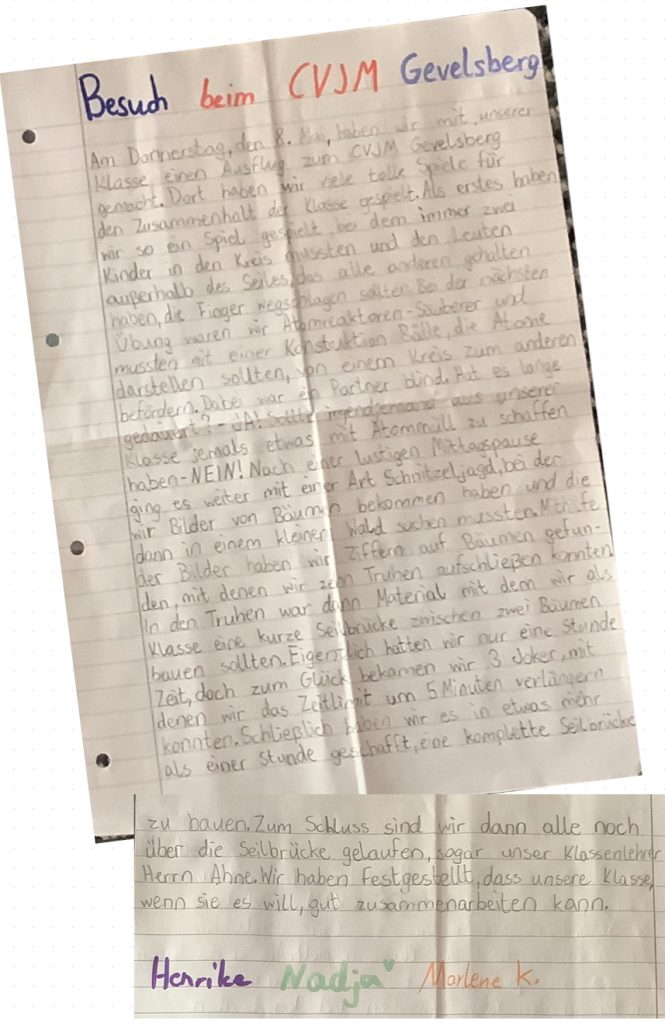 Besuch beim CVJM Gevelsberg
Am Donnerstag, den 8. Mai, haben wir mit unserer
Klasse einen Ausflug zum CVJM Gevelsberg
gemacht. Dort haben wir viele tolle Spiele für
den Zusammenhalt der Klasse gespielt. Als erstes haben
wir so ein Spiel gespielt, bei dem immer zwei
Kinder in den Kreis mussten und den Leuten
außerhalb des Seiles, das alle anderen gehalten
haben, die Finger wegschlagen sollten. Bei der nächsten
Übung waren wir Atomreaktoren-Säuberer und
mussten mit einer Konstruktion Bälle, die Atome
darstellen sollten, von einem Kreis zum anderen
befördern. Dabei war ein Partner blind. Hat es lange
gedauert? - JA! Sollte irgendjemand aus unserer
Klasse jemals etwas mit Atommüll zu schaffen
haben - NEIN! Nach einer lustigen Mittagspause
ging es weiter mit einer Art Schnitzeljagd, bei der
wir Bilder von Bäumen bekommen haben und die
dann in einem kleinen Wald suchen mussten. Mithilfe
der Bilder haben wir Ziffern auf Bäumen gefun-
den, mit denen wir zehn Truhen aufschließen konnten.
In den Truhen war dann Material mit dem wir als
Klasse eine kurze Seilbrücke zwischen zwei Bäumen
bauen sollten. Eigentlich hatten wir nur eine Stunde
Zeit, doch zum Glück bekamen wir 3 Joker, mit
denen wir das Zeitlimit um 5 Minuten verlängern
konnten. Schließlich haben wir es in etwas mehr
als einer Stunde geschafft, eine komplette Seilbrücke
zu bauen. Zum Schluss sind wir dann alle noch
über die Seilbrücke gelaufen, sogar unser Klassenlehrer
Herrn Ahne. Wir haben Festgestellt, dass unsere Klasse,
wenn sie es will, gut zusammenarbeiten kann.
Henrike Nadja Marlene K.